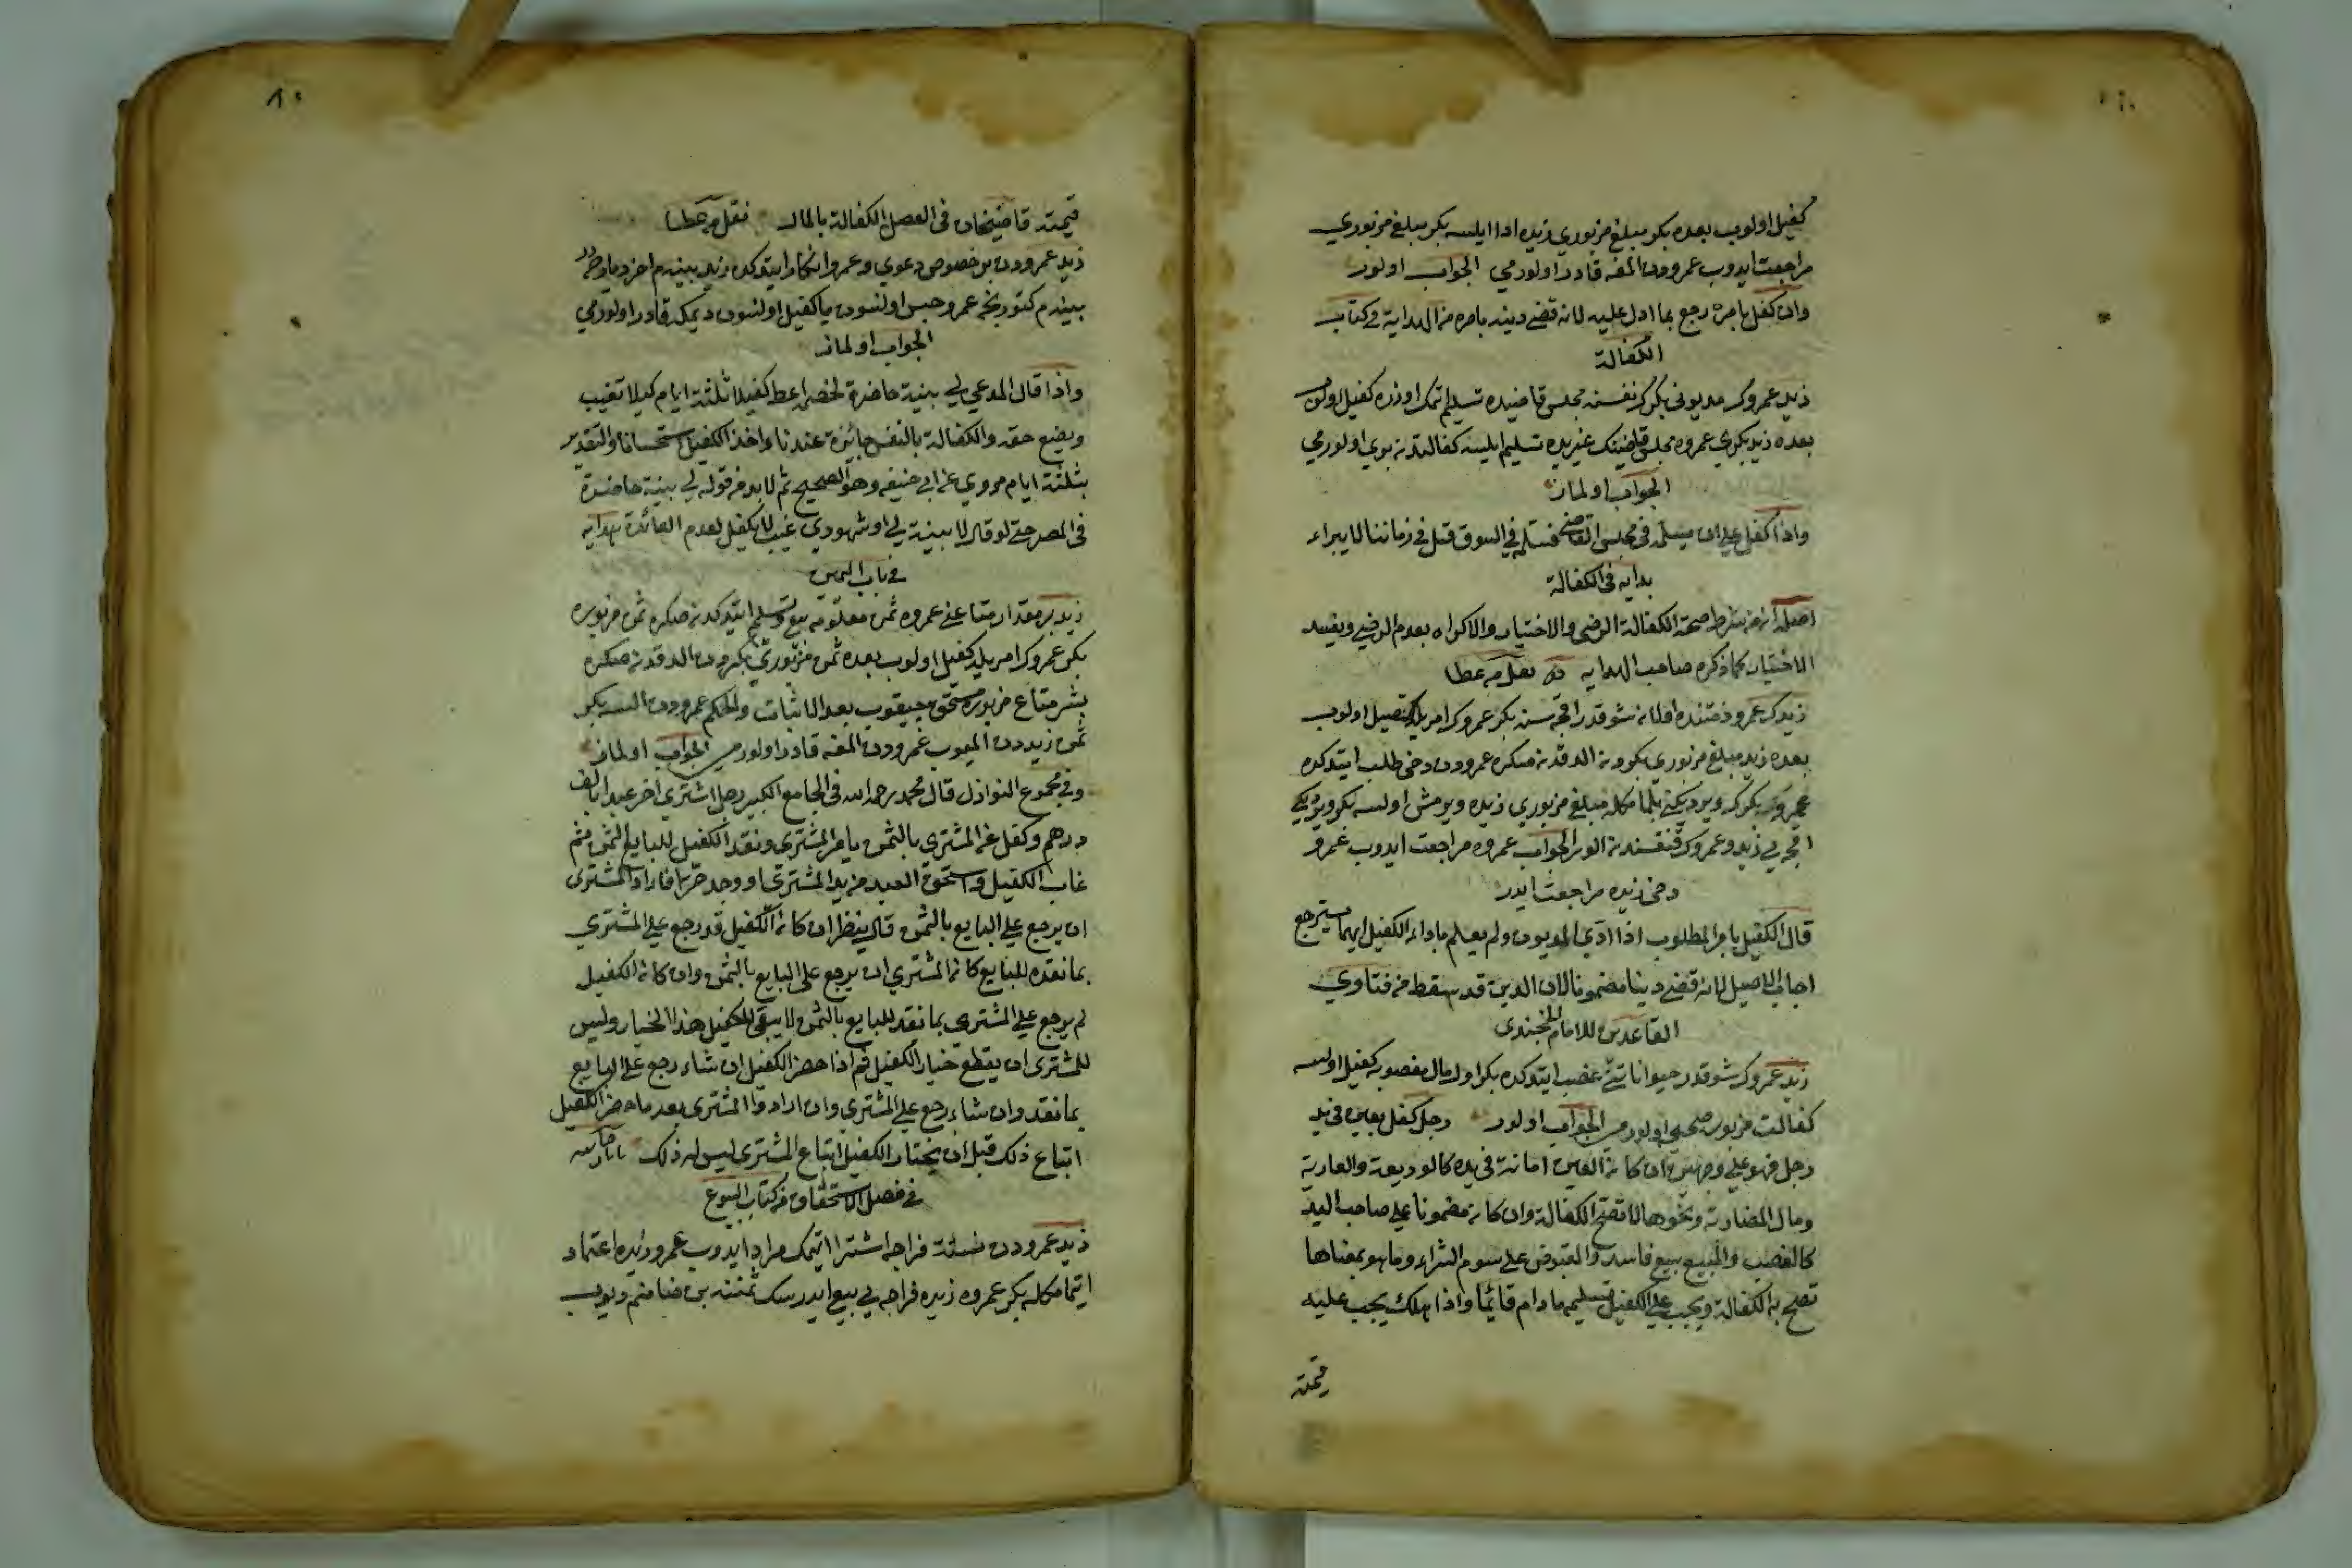 كفيل اولوب بعده بكر مبلغ مزبوري زيده ادا ايلسه بكر مبلغ مزبوري
مراجعت ايدوب عمرودن المغه قادر اولورمي الجواب اولور
وان كفل بامره رجع بما ادى عليه لانه قضى دينه بامره من الهداية في كتاب
الكفالة
زيد عمروك مديونى بكرك نفسنه مجلس قاضيده تسليم اتمك اوزره كفيل اولوب
بعده زيد بكري عمروه مجلس قاضينك غيريده تسليم ايلسه كفالتدنه بري اولورمي
الجواب اولماز
واذا كفل على ان يسلمه فى مجلس القاضى فسلمه في السوق قبل في زماننا لا يبراء
هدايه فى الكفالة
اصله ان من شرط صحة الكفالة الرضى والاختيار والاكراه يعدم الرضى ويفسد
الاختيار كما ذكره صاحب الهدايه نقل من عطا
زيدك عمرو ذمتنده اولانه شو قدر اقچه سنه بكر عمروك امريله كفيل اولوب
بعده زيد مبلغ مزبوري بكردنه الدقدنه صكره عمرودن دخى طلب ايتدكده
عمرو بكرك ويرديكنى بلمامكله مبلغ مزبوري زيده ويرمش اولسه بكر ويرديكى
اقچه يي زيد وعمروك قنقسندنه الور الجواب عمروه مراجعت ايدوب عمرو
دخى زيده مراجعت ايدر
قال الكفيل بامر المطلوب اذا ادى المديون ولم يعلم باداء الكفيل ايهما يسترجع
اجاب الاصيل لانه قضى دينا مضمونا لان الدين قد سقط من فتاوي
القاعدى للامام الخجندى
زيد عمروك شو قدر حيواناتنى غصب ايتدكده بكر اول مال مغصوبه كفيل اولسه
كفالت مزبوره صحيح اولورمي الجواب اولور رجل كفل بعين في يد
رجل فهو على وجهين ان كانه العين امانة فى يده كالوديعة والعارية
ومال المضاربة ونحوها لا تصح الكفالة وان كانه مضمونا على صاحب اليد
كالغصب والمبيع بيع فاسد والمقبوض على سوم الشراء وما هو بمعناها
تصح به الكفالة ويجب على الكفيل تسليمه ما دام قائما واذا هلك يجب عليه
قيمته
٨٠
قيمته قاضيخان فى الفصل الكفالة بالمال نقل من عطا
زيد عمرودن بر خصوص دعوي وعمرو انكار ايتدكده زيد بينه م
بينه م كتورنجه عمرو حبس اولنسون يا كفيل اولنسون ديمكه قادر اولورمي
الجواب اولماز
واذا قال المدعي لي بينة حاضرة لخصمه اعط كفيلا ثلثة ايام كيلا تغيب
ويضيع حقه والكفالة بالنفس جائزة عندنا واخذ الكفيل استحسانا والتقدير
بثلثة ايام مروي عن ابي حنيفه وهو الصحيح ثم لا بد من قوله لي بينة حاضرة
فى المصر حتى لو قال لا بينة لي او شهودي غيب لا يكفل لعدم الفائدة هدايه
في باب اليمين
زيد بر مقدار متاعنى عمروه ثمن معلومه بيع وتسليم ايتدكدنه صكره ثمن مزبوره
بكر عمروك امريله كفيل اولوب بعده ثمن مزبوري بكردن الدقدنه صكره
بشر متاع مزبوره مستحق چيقوب بعد الاثبات والحكم عمرودن السه بكر
ثمن زيددن المیوب عمرودن المغه قادر اولورمي الجواب اولماز
وفي مجموع النوازل قال محمد رحمه الله فى الجامع الكبير رجل اشتري اخر عبدا بالف
درهم وكفل عن المشتري بالثمن بامر المشترى ونقد الكفيل للبايع الثمن ثم
غاب الكفيل واستحق العبد من يد المشترى او وجد حرا فاراد المشترى
ان يرجع على البايع بالثمن قال ينظر ان كانه الكفيل قد رجع على المشتري
بما نقده للبايع كانه المشتري ان يرجع على البايع بالثمن وان كانه الكفيل
لم يرجع على المشترى بما نقد للبايع بالثمن لا يبقى للكفيل هذا الخيار وليس
للمشترى ان يقطع خيار الكفيل ثم اذا حضر الكفيل ان شاء رجع على البايع
بما نقد وان شاء رجع على المشتري وان اراد المشترى بعد ما حضر الكفيل
اتباع ذلك قبل ان يختار الكفيل اتباع المشترى ليس له ذلك تاتارخانيه
في فصل الاستحقاق من كتاب البيوع
زيد عمرودن نسئة فراجه اشترا اتيمك مراد ايدوب عمرو زيده اعتماد
اتمامكله بكر عمروه زيده فراجه يي بيع ايدرسك ثمننه بن ضامنم ديوب